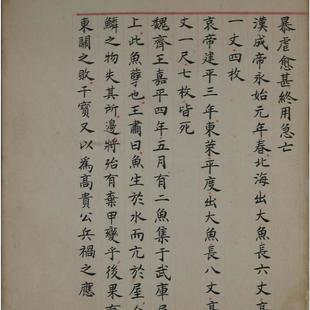 暴虐愈甚終用急亡
漢成帝永始元年春北海出大魚長六丈高
一丈四枚
哀帝建平三年東萊平度出大魚長八丈高
丈一尺七枚皆死
魏齊王嘉平四年五月有二魚集于武庫屋
上此魚孽也王肅曰魚生於水而亢於屋介
鱗之物失其所邊將殆有棄甲變乎後果有
東關之敗干寶又以為高貴公兵禍之應